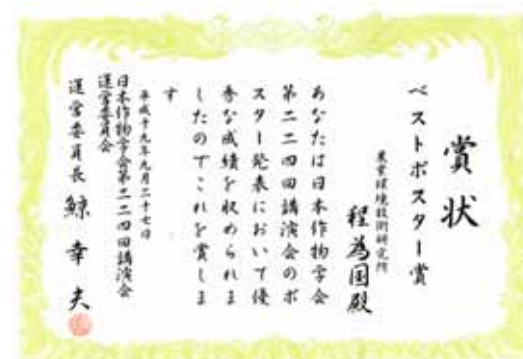 賞状
ベストポスター賞
農業環境技術研究所
程為国殿
あなたは日本作物学会
第二二四回講演会のポ
スター発表において優
秀な成績を収められま
したのでこれを賞しま
す
平成十九年九月二十七日
日本作物学会第二二四回講演会
運営委員会
運営委員長 鯨幸夫